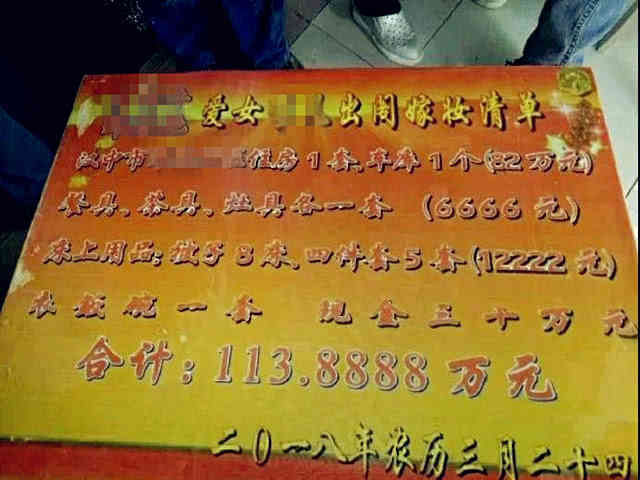 爱女 出阁嫁妆清单
汉中市 住房1套、车库1个(82万元)
餐具、茶具、灶具各一套 (6666元)
床上用品:被子8床、四件套5套(12222元)
衣 饭碗一套 现金三十万元
合计:113.8888万元
二〇一八年农历三月二十四